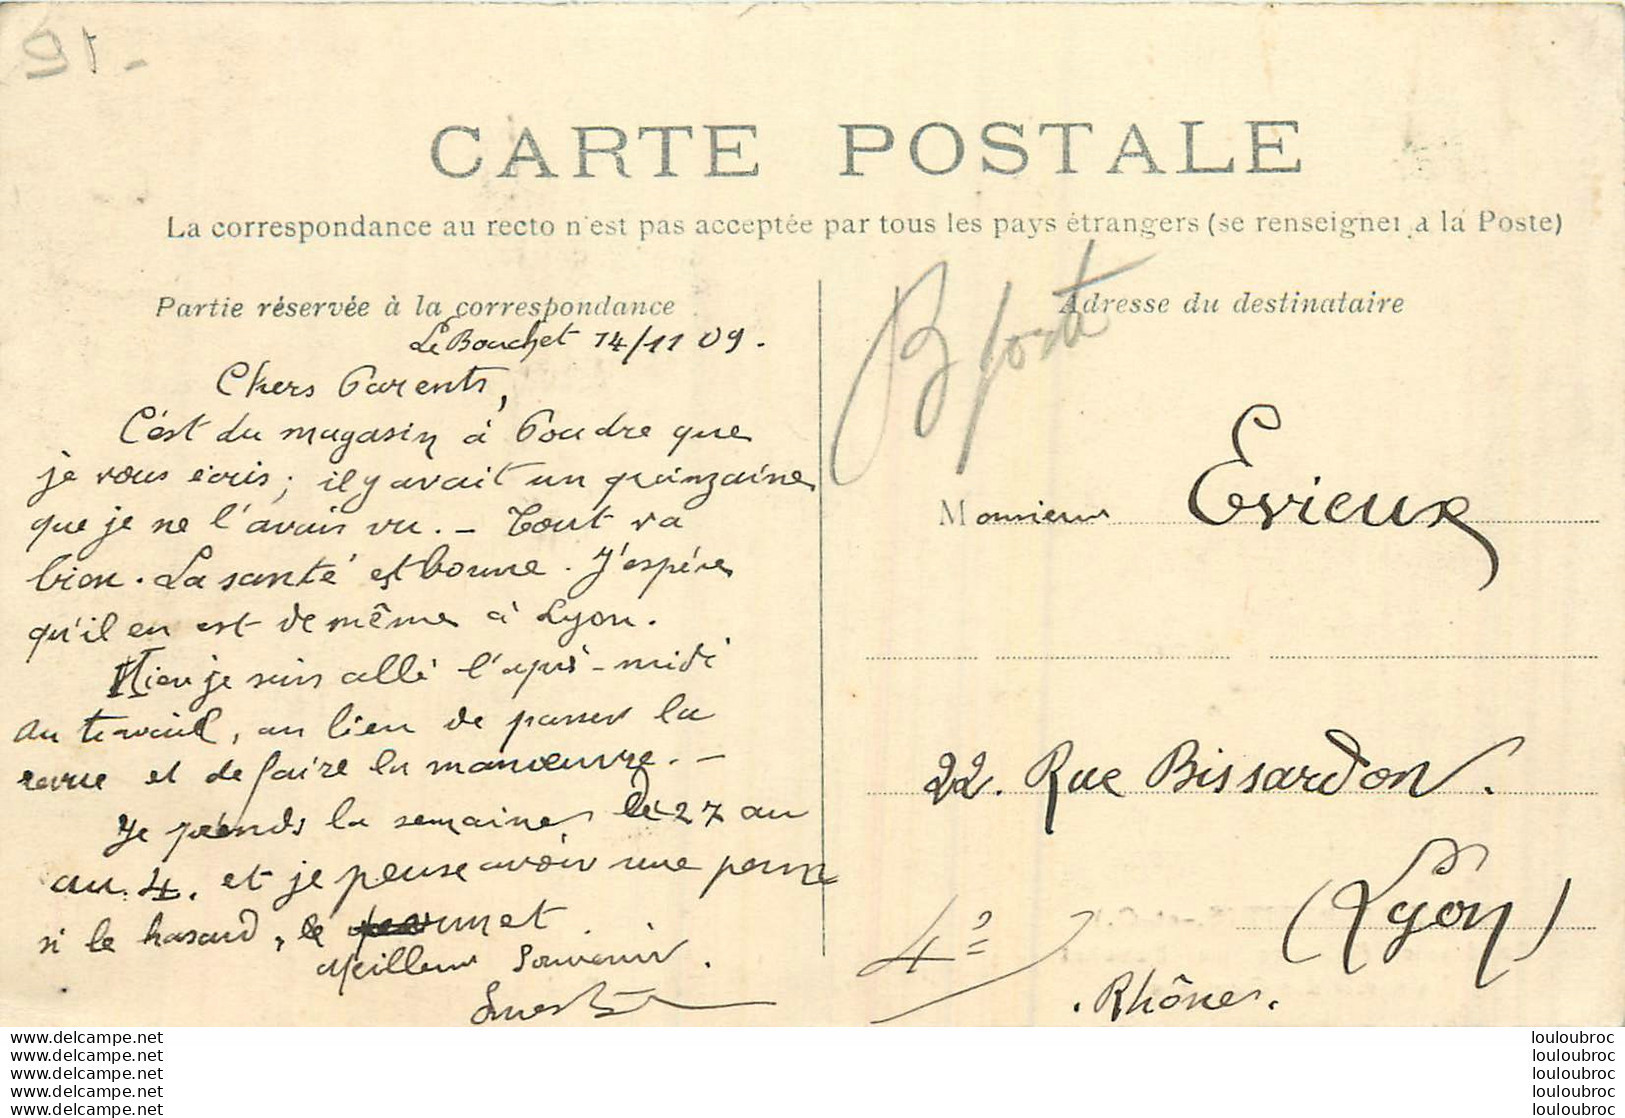 91-
CARTE POSTALE
La correspondance au recto n'est pas acceptée par tous les pays étrangers (se renseigner à la Poste)
Partie réservée à la correspondance
Le Bouchet 14/11 09.
Chers Parents,
C'est du magasin à Poudre que
je vous écris; il y avait un quinzaine
que je ne l'avais vu. - Tout va
bien. La santé est bonne. J'espère
qu'il en est de même à Lyon.
Hier je suis allé l'après-midi
au travail, au lieu de passer la
revue et de faire la manoeuvre. -
Je prends la semaine du 27 au
au 4. et je pense avoir une perm
si le hasard, le permet.
Meilleur Souvenir.
Ernest
Adresse du destinataire
B poste
Monsieur Evieux
22. Rue Bissardon.
(Lyon)
4e
. Rhône.
www.delcampe.net
www.delcampe.net
www.delcampe.net
www.delcampe.net
www.delcampe.net
louloubroc
louloubroc
louloubroc
louloubroc
louloubroc